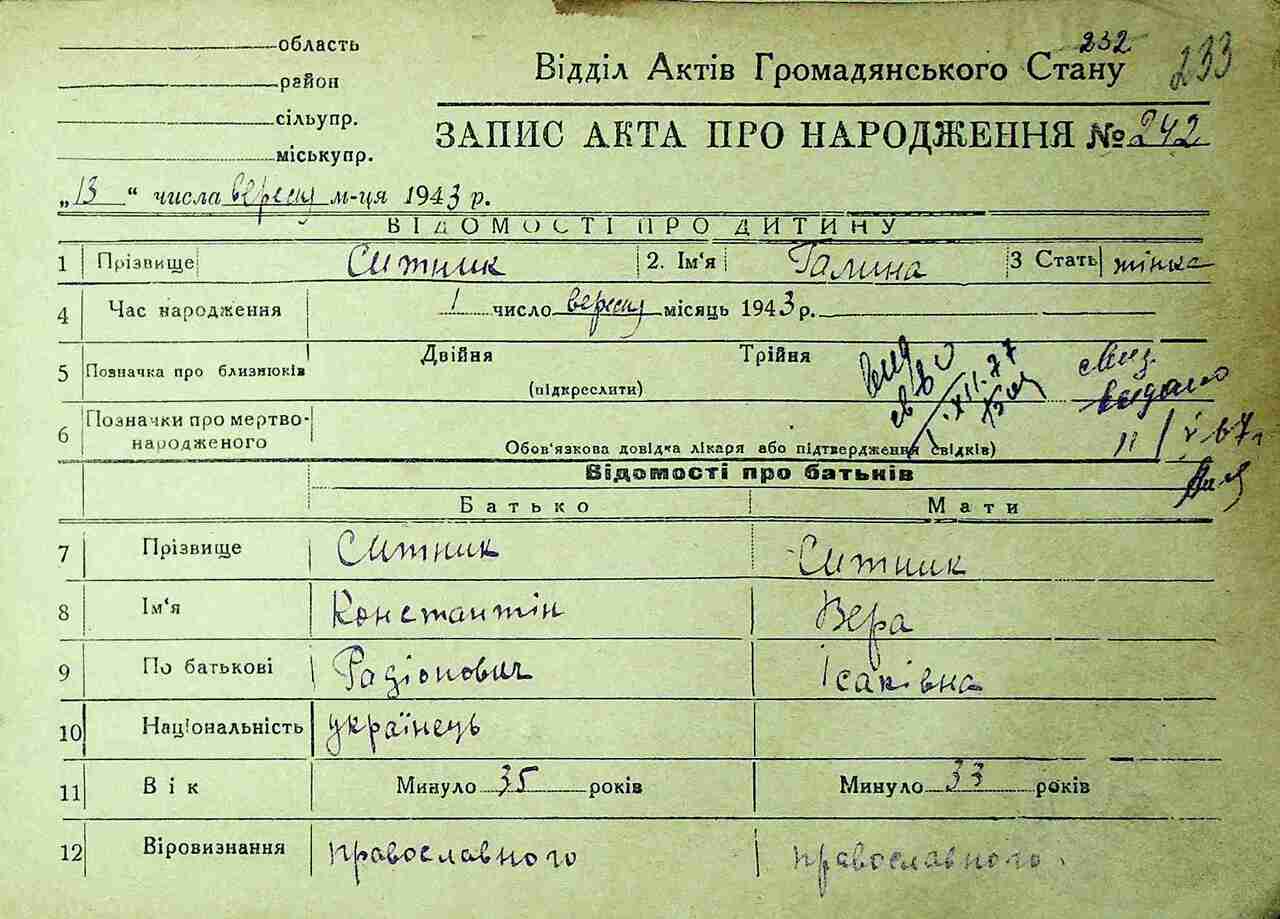 область
район
сільупр.
міськупр.
232
233
Відділ Актів Громадянського Стану
ЗАПИС АКТА ПРО НАРОДЖЕННЯ № 242
„13“ числа вересня м-ця 1943 р.
ВІДОМОСТІ ПРО ДИТИНУ
1 Прізвище Ситник 2. Ім'я Галина 3 Стать жінка
4 Час народження 1 число вересня місяць 1943 р.
5 Позначка про близнюків Двійня Трійня
(підкреслити)
XII.77
видано
6 Позначки про мертво-
народженого
Обов'язкова довідка лікаря або підтвердження свідків)
11/V 67 г
Відомості про батьків
Батько Мати
7 Прізвище Ситник Ситник
8 Ім'я Константін Вера
9 По батькові Радіонович Ісаківна
10 Національність українець
11 Вік Минуло 35 років Минуло 33 років
12 Віровизнання православного православного